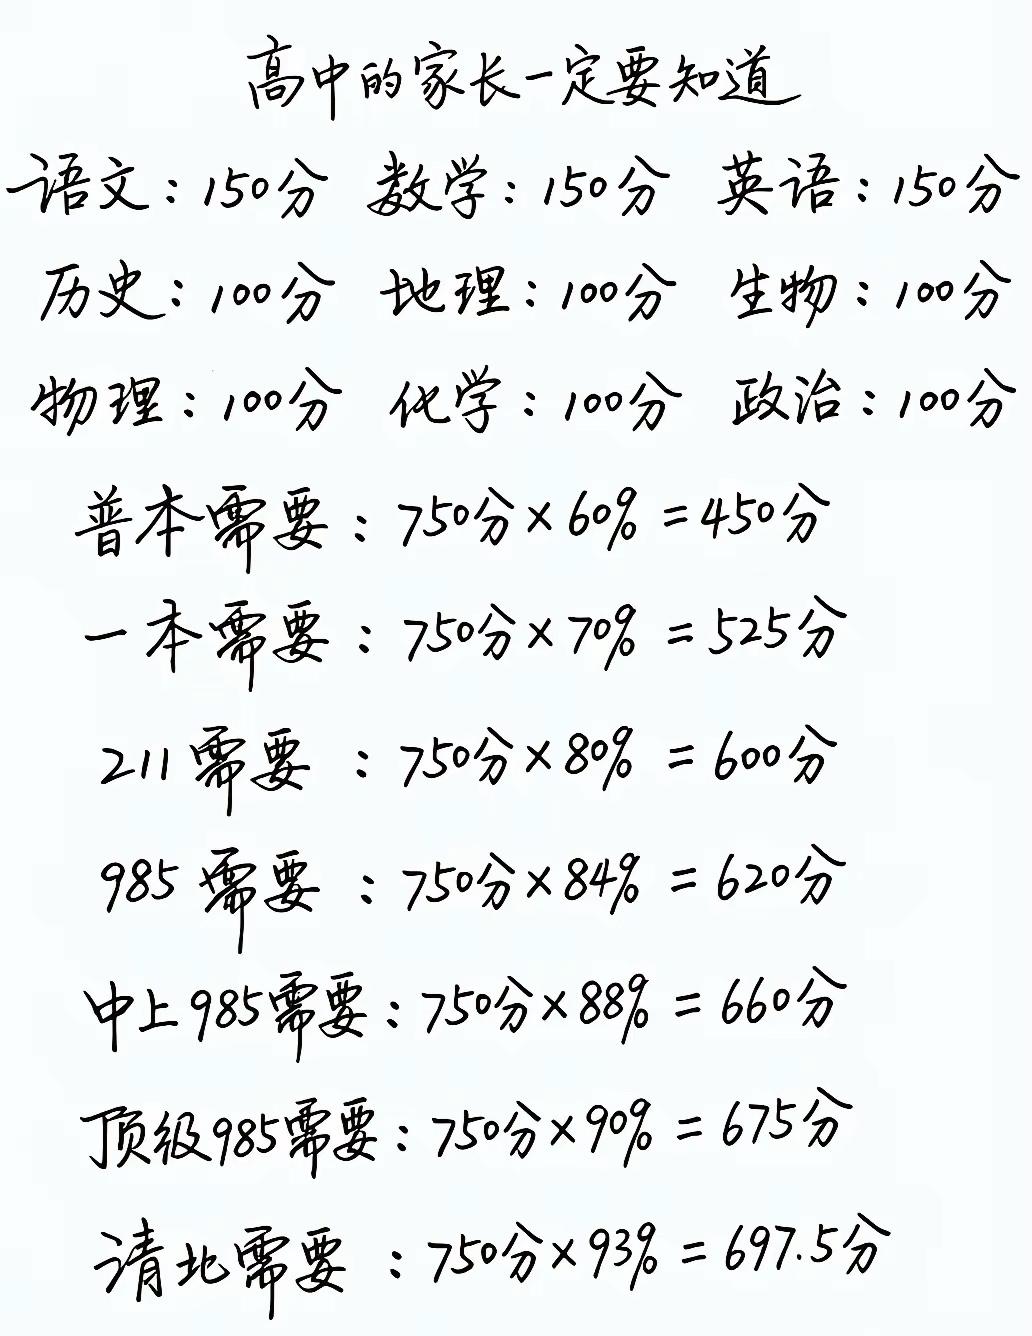 高中的家长一定要知道
语文:150分 数学:150分 英语:150分
历史:100分 地理:100分 生物:100分
物理:100分 化学:100分 政治:100分
普本需要:750分×60%=450分
一本需要:750分×70%=525分
211需要:750分×80%=600分
985需要:750分×84%=620分
中上985需要:750分×88%=660分
顶级985需要:750分×90%=675分
清北需要:750分×93%=697.5分